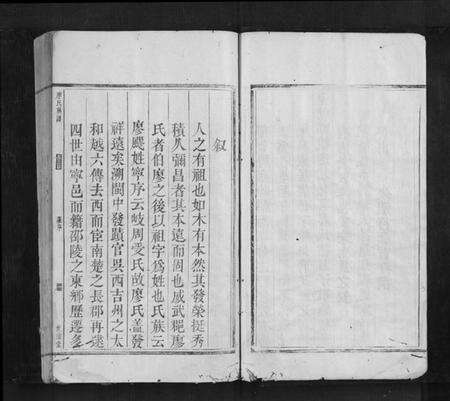 叙
人之有祖也如木有本然其發榮挺秀
積久彌昌者其本遠而固也威武𤠔廖
氏者伯廖之後以祖字爲姓也氏族云
廖颺姓寧序云岐周受氏故廖氏蓋發
祥遠矣溯閩中發蹟官吳西吉州之太
和越六傳去西而宦南楚之長郡再遞
四世由寧邑而籍邵陵之東鄉歷遷多
廖氏族譜